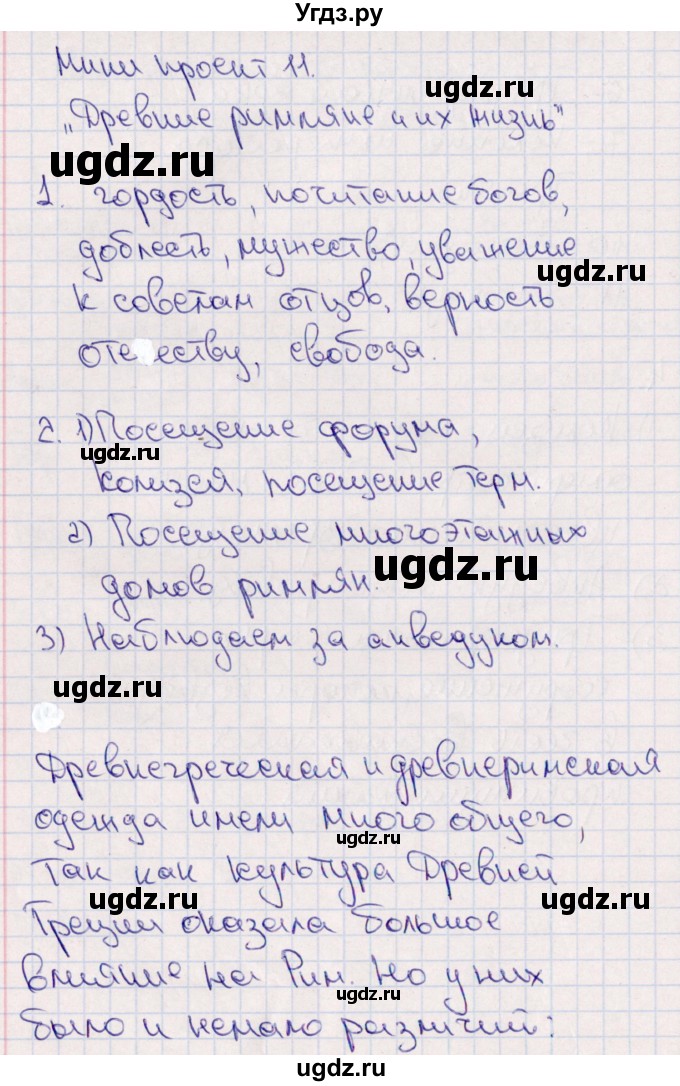 Угдз.ру
Мини проект 11.
ugdz.ru
„Древние римляне и их жизнь"
ugdz.ru
1. гордость, почитание богов,
доблесть, мужество, уважение
ugdz.ru
к советам отцов, верность
отечеству, свобода.
ugdz.ru
2. 1) Посещение форума,
ugdz.ru
Колизея, посещение терм.
2) Посещение многоэтажных
ugdz.ru
домов римлян.
3) Наблюдаем за акведуком.
ugdz.ru
Древнегреческая и древнеримская
одежда имели много общего,
ugdz.ru
Так как культура Древней
ugdz.ru
Греции оказала большое
влияние на Рим. Но у них
ugdz.ru
было и немало различий:
ugdz.ru